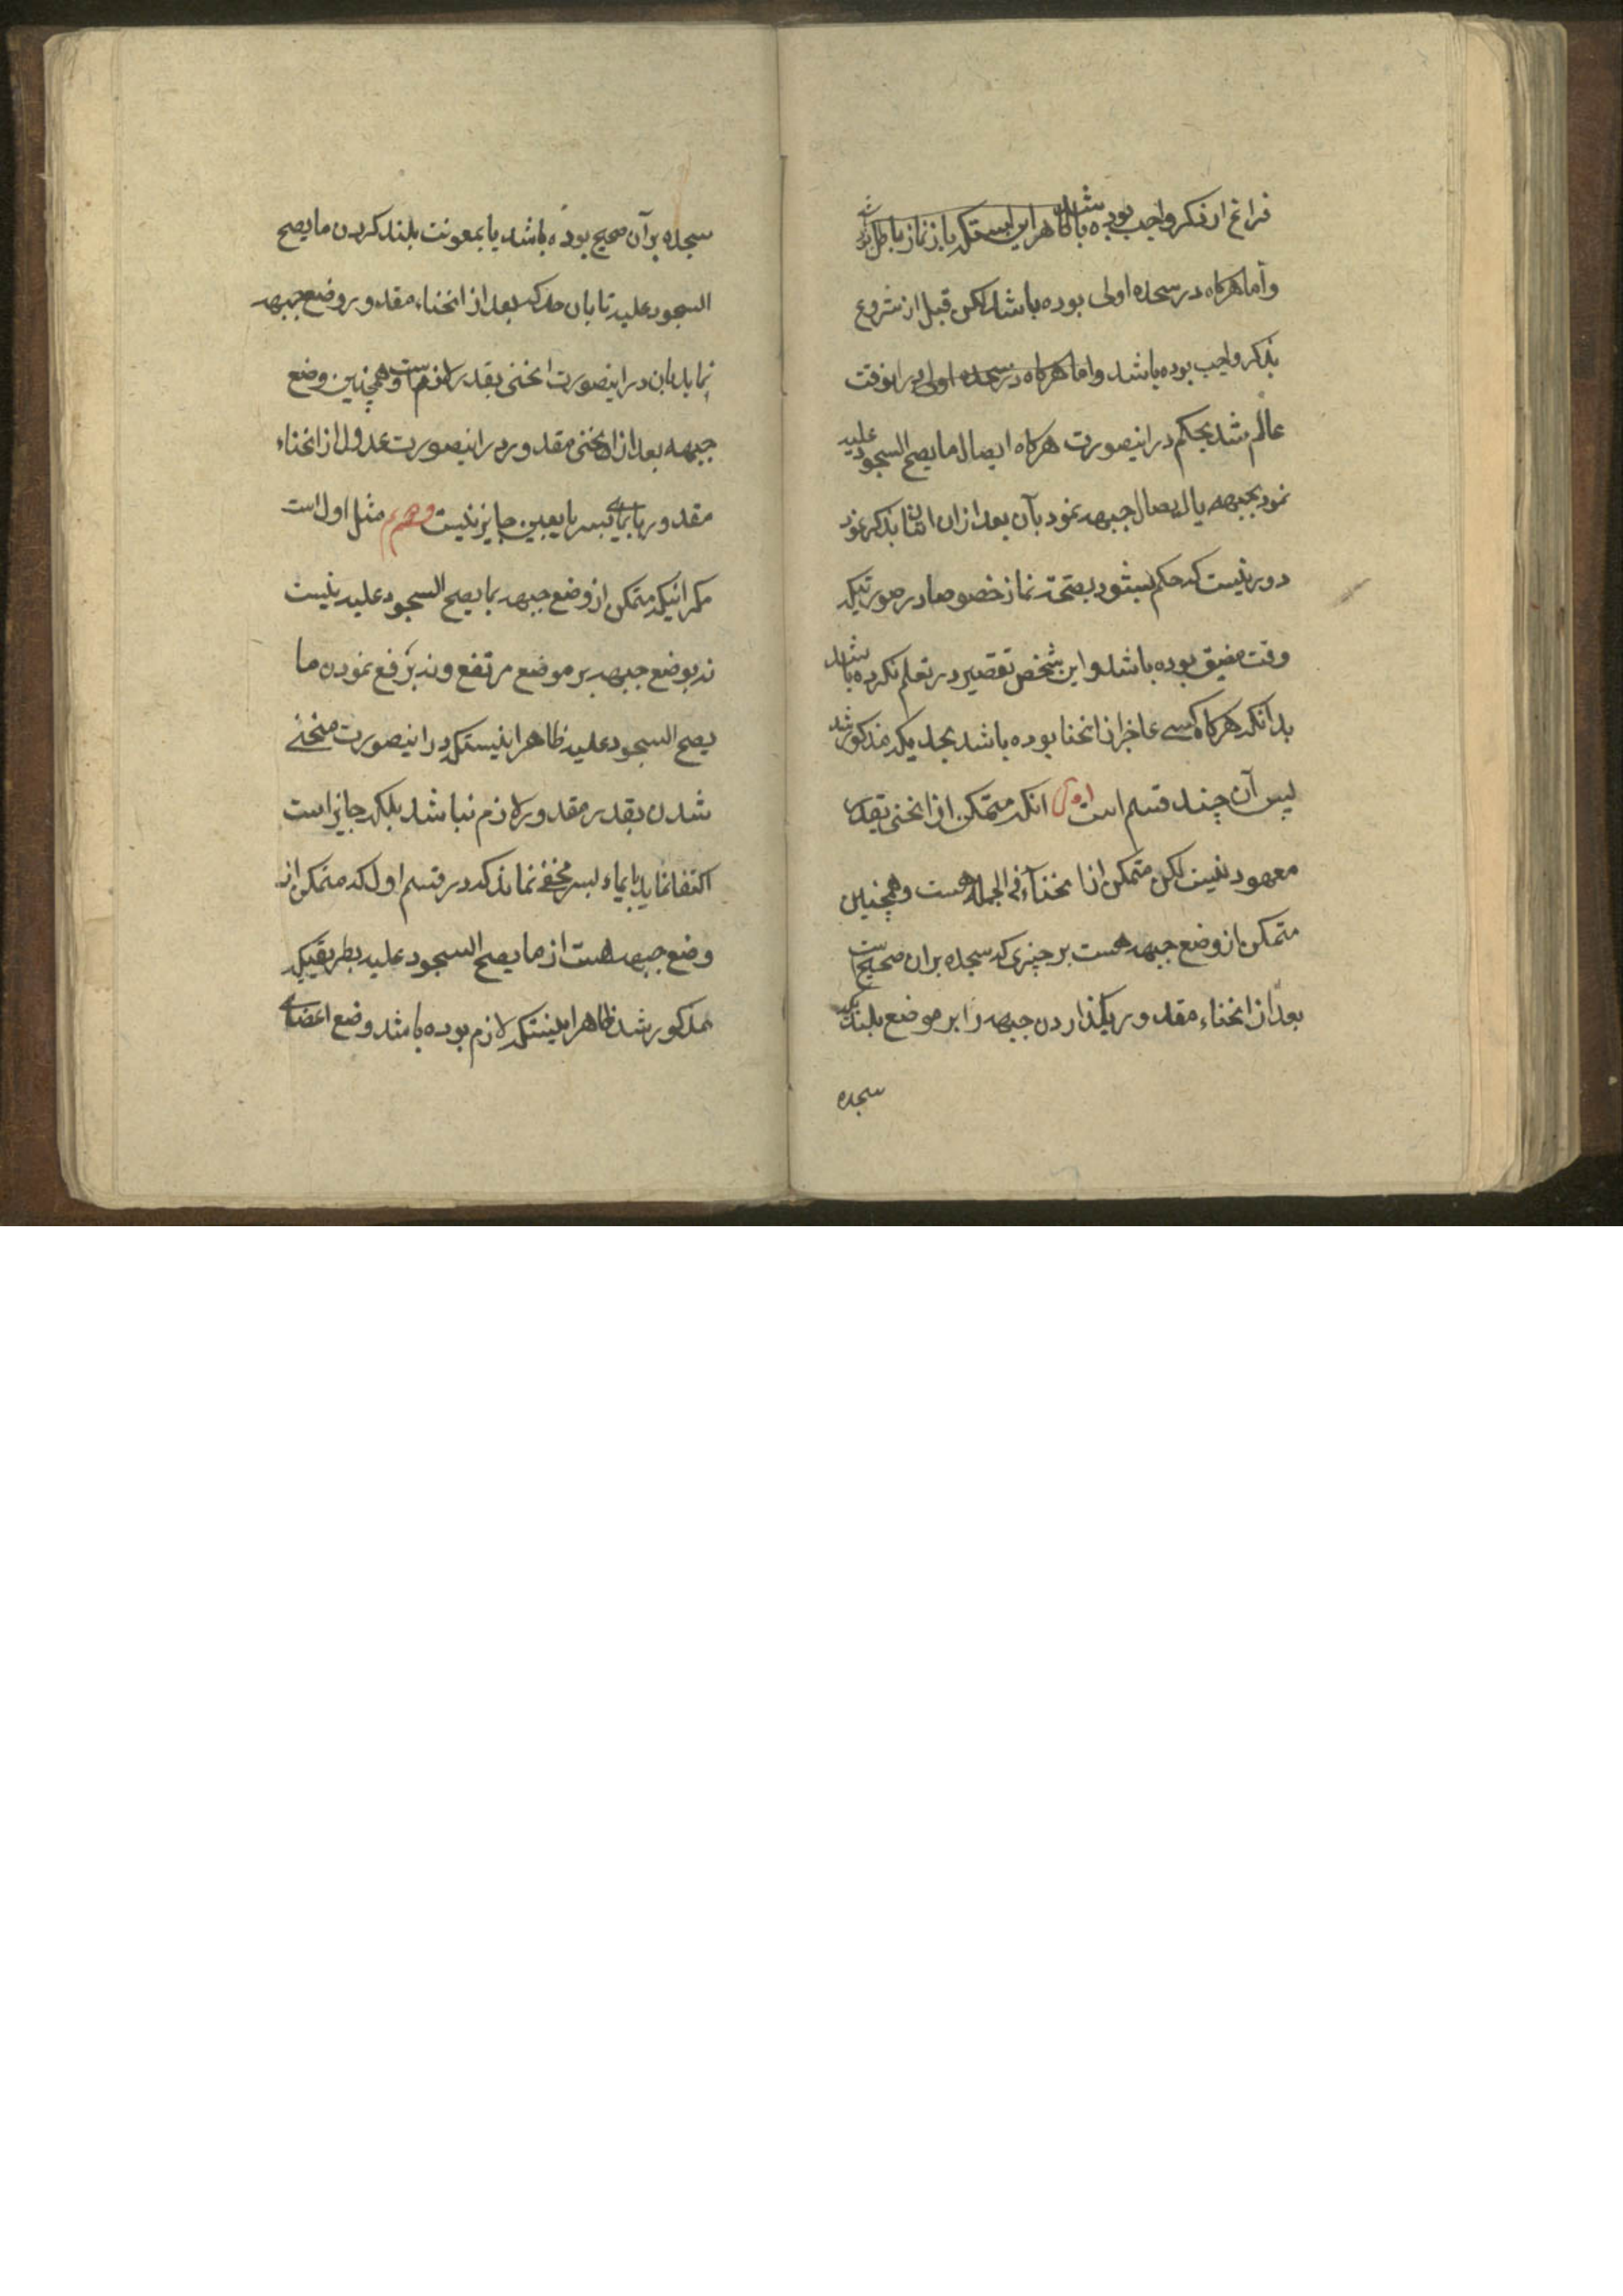 فراغ از ذکر واجب بوده باشد ظاهر این استکه باز نماز باطل بوده باشد
و اما هرکاه در سجده اولی بوده باشد لکن قبل از شروع
بذکر واجب بوده باشد و اما هرکاه در سجده اولی در انوقت
عالم شد بحکم در اینصورت هرکاه ایصال ما یصح السجود علیه
نمود بجبهه یا ایصال جبهه نمود بآن بعد از ان اتیان بذکر نمود
دور نیست که حکم بشود بصحّت نماز خصوصا در صورتیکه
وقت مضیق بوده باشد و این شخص تقصیر در تعلم نکرده باشد
بدانکه هرکاه کسی عاجز از انحنا بوده باشد بحدیکه مذکور شد
پس آن چند قسم است اول انکه متمکن از انحنی بقدر
معهود نیست لکن متمکن از انحنآء فی الجمله هست و همچنین
متمکن از وضع جبهه هست بر چیزی که سجده بر ان صحیح است
بعد از انحناء مقدور بکذاردن جبهه را بر موضع بلند که
سجده
سجده بر آن صحیح بوده باشد یا بمعونت بلند کردن ما یصح
السجود علیه تا بان حد که بعد از انحناء مقدور وضع جبهه
نماید بان در اینصورت انحنی بقدر لازم است و همچنین وضع
جبهه بعد از انحنی مقدور در اینصورت عدول از انحناء
مقدور بایمای بسر یا بعین جایز نیست دویم مثل اول است
مکر اینکه متمکن از وضع جبهه بما یصح السجود علیه نیست
نه بوضع جبهه بر موضع مرتفع و نه برفع نمودن ما
یصح السجود علیه ظاهر اینستکه در اینصورت منحنی
شدن بقدر مقدور لازم نباشد بلکه جایز است
اکتفا نماید بایماء بسر مخفی نماند که در قسم اول که متمکن از
وضع جبهه هست از ما یصح السجود علیه بطریقیکه
مذکور شد ظاهر اینستکه لازم بوده باشد وضع اعضای